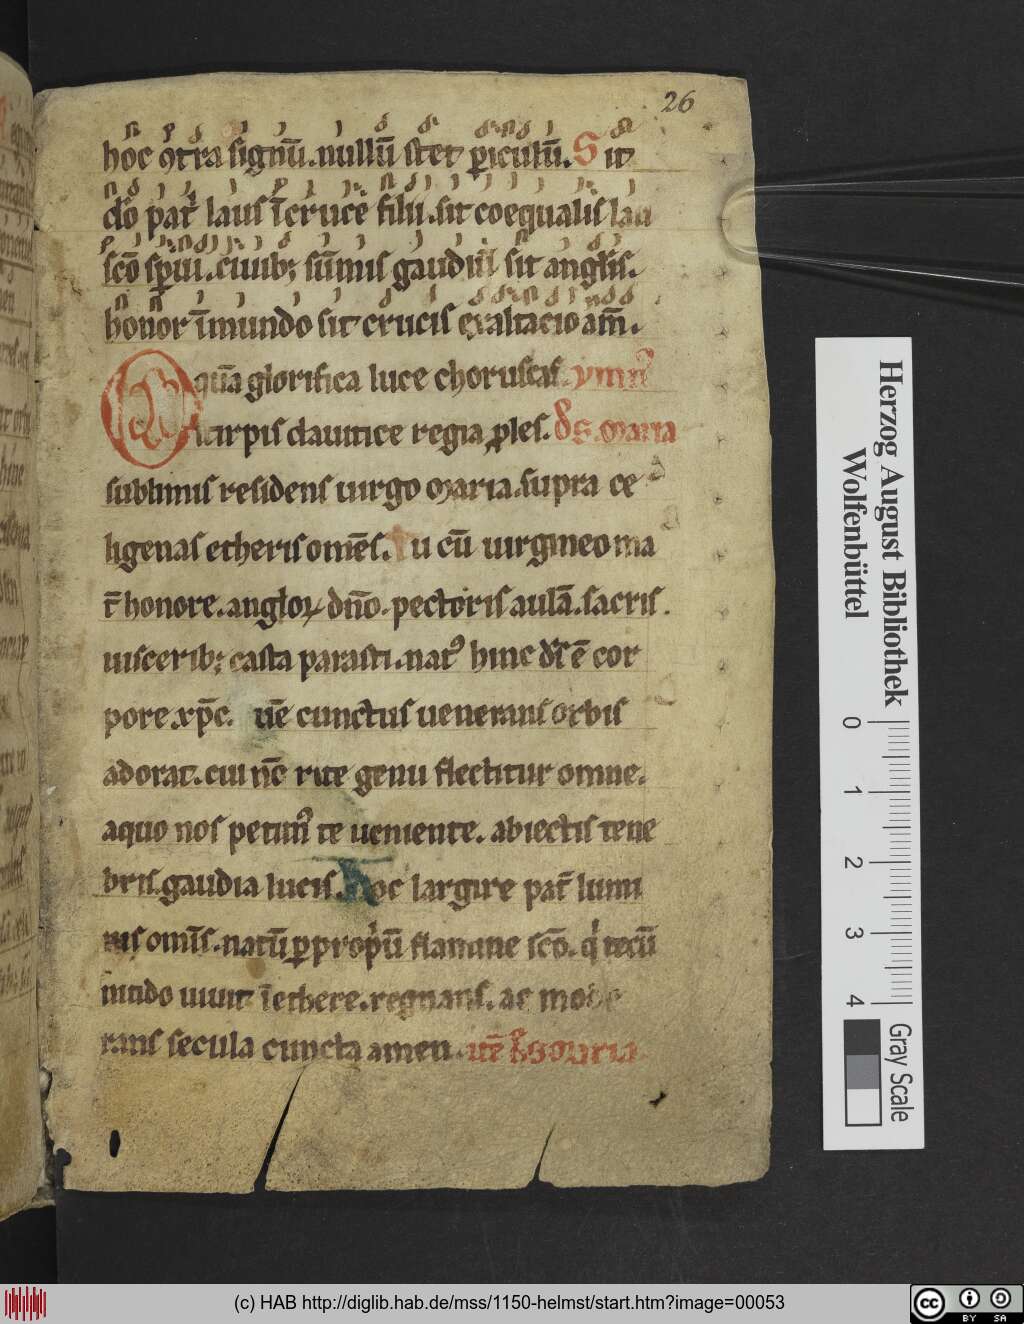 26
hoc ɔtra signū. nullū stet periculū. Sit
dō patͥ laus ī cruce filii. sit coequalis lau
sc̄o sp̄ui. ciuibꝫ sūmis gaudiū sit anglis.
honor ī mundo sit crucis exaltacio am̄.
O quā glorifica luce choruscas. ymn
stirpis dauitice regia ꝓles. de s. maria
sublimis residens uirgo maria. supra ce
ligenas etheris om̄es. Tu cū uirgineo ma
t̄ honore. angloꝝ dn̄o. pectoris aulā. sacris
uisceribꝫ casta parasti. natꝰ hinc ds̄ ē cor
pore xp̄c. quē cunctus uenerans orbis
adorat. cui nc̄ rite genu flectitur omne.
a quo nos petimꝰ te ueniente. abiectis tene
bris. gaudia lucis. Hoc largire pat̄ lumi
nis om̄is. natū ꝑ propriū flamine sc̄o. qͥ tecū
nitido uiuit ī ethere. regnans. ac mode
rans secula cuncta amen. itē de s. maria
Herzog August Bibliothek
Wolfenbüttel
0 1 2 3 4
Gray Scale
(c) HAB http://diglib.hab.de/mss/1150-helmst/start.htm?image=00053
cc BY SA